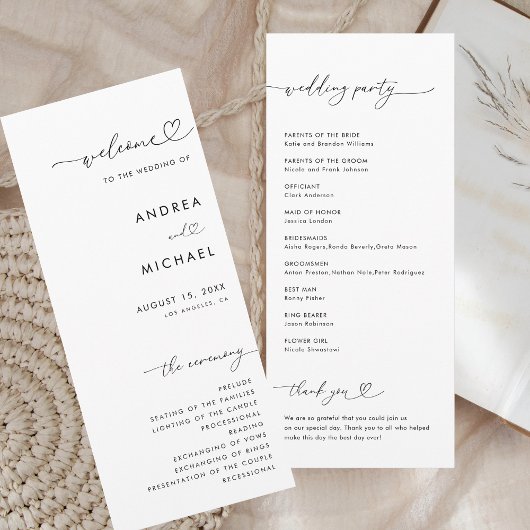 welcome
TO THE WEDDING OF
ANDREA
and
MICHAEL
AUGUST 15, 20XX
LOS ANGELES, CA
the ceremony
PRELUDE
SEATING OF THE FAMILIES
LIGHTING OF THE CANDLE
PROCESSIONAL
READING
EXCHANGING OF VOWS
EXCHANGING OF RINGS
PRESENTATION OF THE COUPLE
RECESSIONAL
wedding party
PARENTS OF THE BRIDE
Katie and Brandon Williams
PARENTS OF THE GROOM
Nicole and Frank Johnson
OFFICIANT
Clark Anderson
MAID OF HONOR
Jessica London
BRIDESMAIDS
Aisha Rogers,Ronda Beverly,Greta Mason
GROOMSMEN
Anton Preston,Nathan Nole,Peter Rodriguez
BEST MAN
Ronny Fisher
RING BEARER
Jason Robinson
FLOWER GIRL
Nicole Shwastowi
thank you
We are so grateful that you could join us
on our special day. Thank you to all who helped
make this day the best day ever!